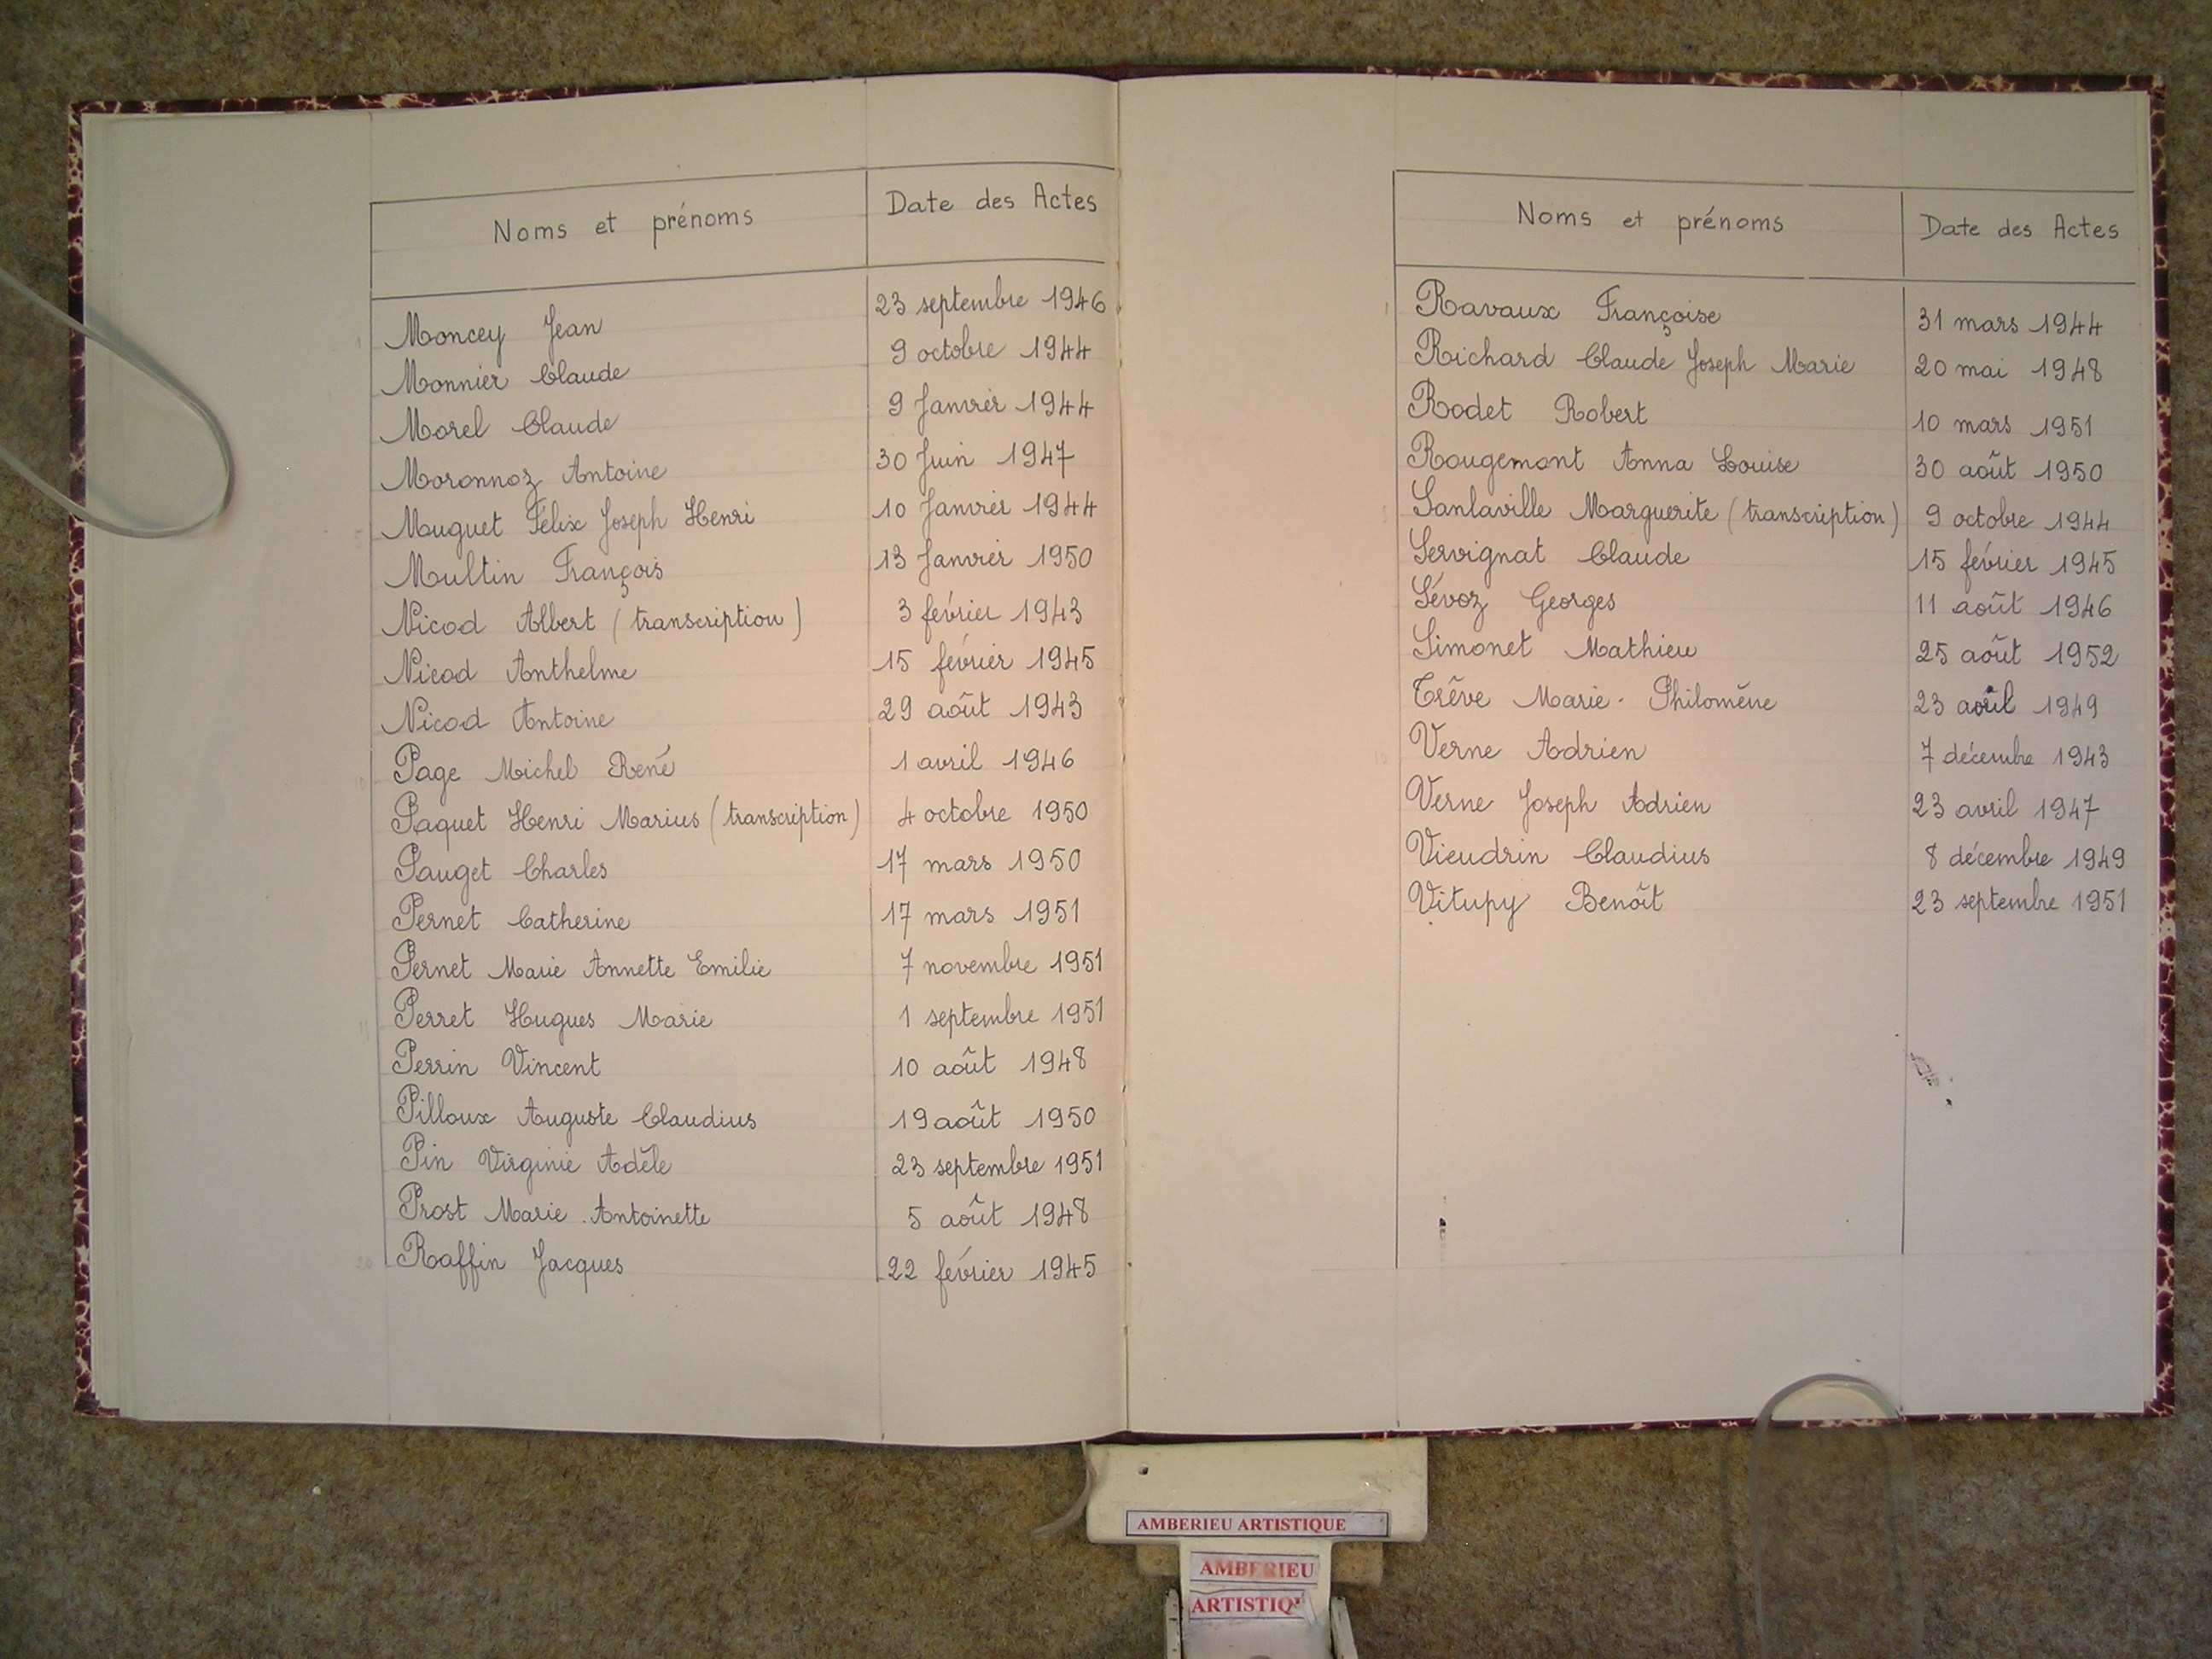 Noms et prénoms Date des Actes
Moncey Jean 23 septembre 1946
Monnier Claude 9 octobre 1944
Morel Claude 9 Janvier 1944
Moronnoz Antoine 30 Juin 1947
Mouguet Félix Joseph Henri 10 Janvier 1944
Moultin François 13 Janvier 1950
Nicod Albert (transcription) 3 février 1943
Nicod Anthelme 15 février 1945
Nicod Antoine 29 août 1943
Page Michel René 1 avril 1946
Paquet Henri Marius (transcription) 4 octobre 1950
Pauget Charles 17 mars 1950
Pernet Catherine 17 mars 1951
Pernet Marie Annette Emilie 7 novembre 1951
Perret Hugues Marie 1 septembre 1951
Perrin Vincent 10 août 1948
Pilloux Auguste Claudius 19 août 1950
Pin Virginie Adèle 23 septembre 1951
Prost Marie Antoinette 5 août 1948
Raffin Jacques 22 février 1945
Noms et prénoms Date des Actes
Ravaux Françoise 31 mars 1944
Richard Claude Joseph Marie 20 mai 1948
Rodet Robert 10 mars 1951
Rougemont Anna Louise 30 août 1950
Sanlaville Marguerite (transcription) 9 octobre 1944
Servignat Claude 15 février 1945
Sévoz Georges 11 août 1946
Simonet Mathieu 25 août 1952
Trêve Marie-Philomène 23 avril 1949
Verne Adrien 7 décembre 1943
Verne Joseph Adrien 23 avril 1947
Vieudrin Claudius 8 décembre 1949
Vitupy Benoît 23 septembre 1951
AMBERIEU ARTISTIQUE
AMBERIEU
ARTISTIQ